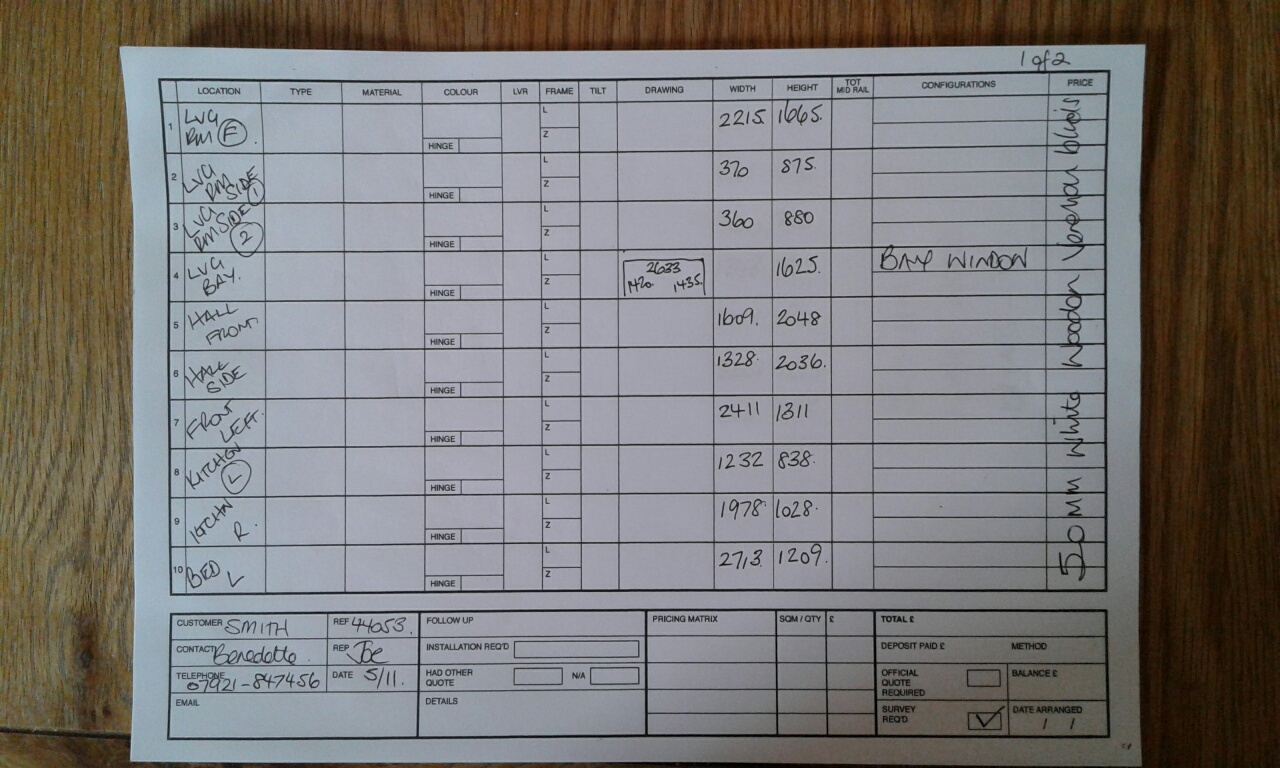 1 of 2
LOCATION TYPE MATERIAL COLOUR LVR FRAME TILT DRAWING WIDTH HEIGHT TOT MID RAIL CONFIGURATIONS PRICE
1 LVG RM F. HINGE L Z 2215 1665
2 LVG RM SIDE 1 HINGE L Z 370 875
3 LVG RM SIDE 2 HINGE L Z 360 880
4 LVG BAY. HINGE L Z 2633 1420 1435 1625 BAY WINDOW
5 HALL FRONT HINGE L Z 1609 2048
6 HALL SIDE HINGE L Z 1328 2036
7 FRONT LEFT HINGE L Z 2411 1311
8 KITCHEN L HINGE L Z 1232 838
9 KITCHN R. HINGE L Z 1978 1028
10 BED L HINGE L Z 2713 1209
50 MM White Wooden Venetian blinds
CUSTOMER SMITH REF 44053.
CONTACT Benedetto REP Joe
TELEPHONE 07921-847456 DATE 5/11.
EMAIL
FOLLOW UP
INSTALLATION REQ'D
HAD OTHER QUOTE N/A
DETAILS
PRICING MATRIX SQM / QTY £
TOTAL £
DEPOSIT PAID £ METHOD
OFFICIAL QUOTE REQUIRED BALANCE £
SURVEY REQ'D DATE ARRANGED
/ /